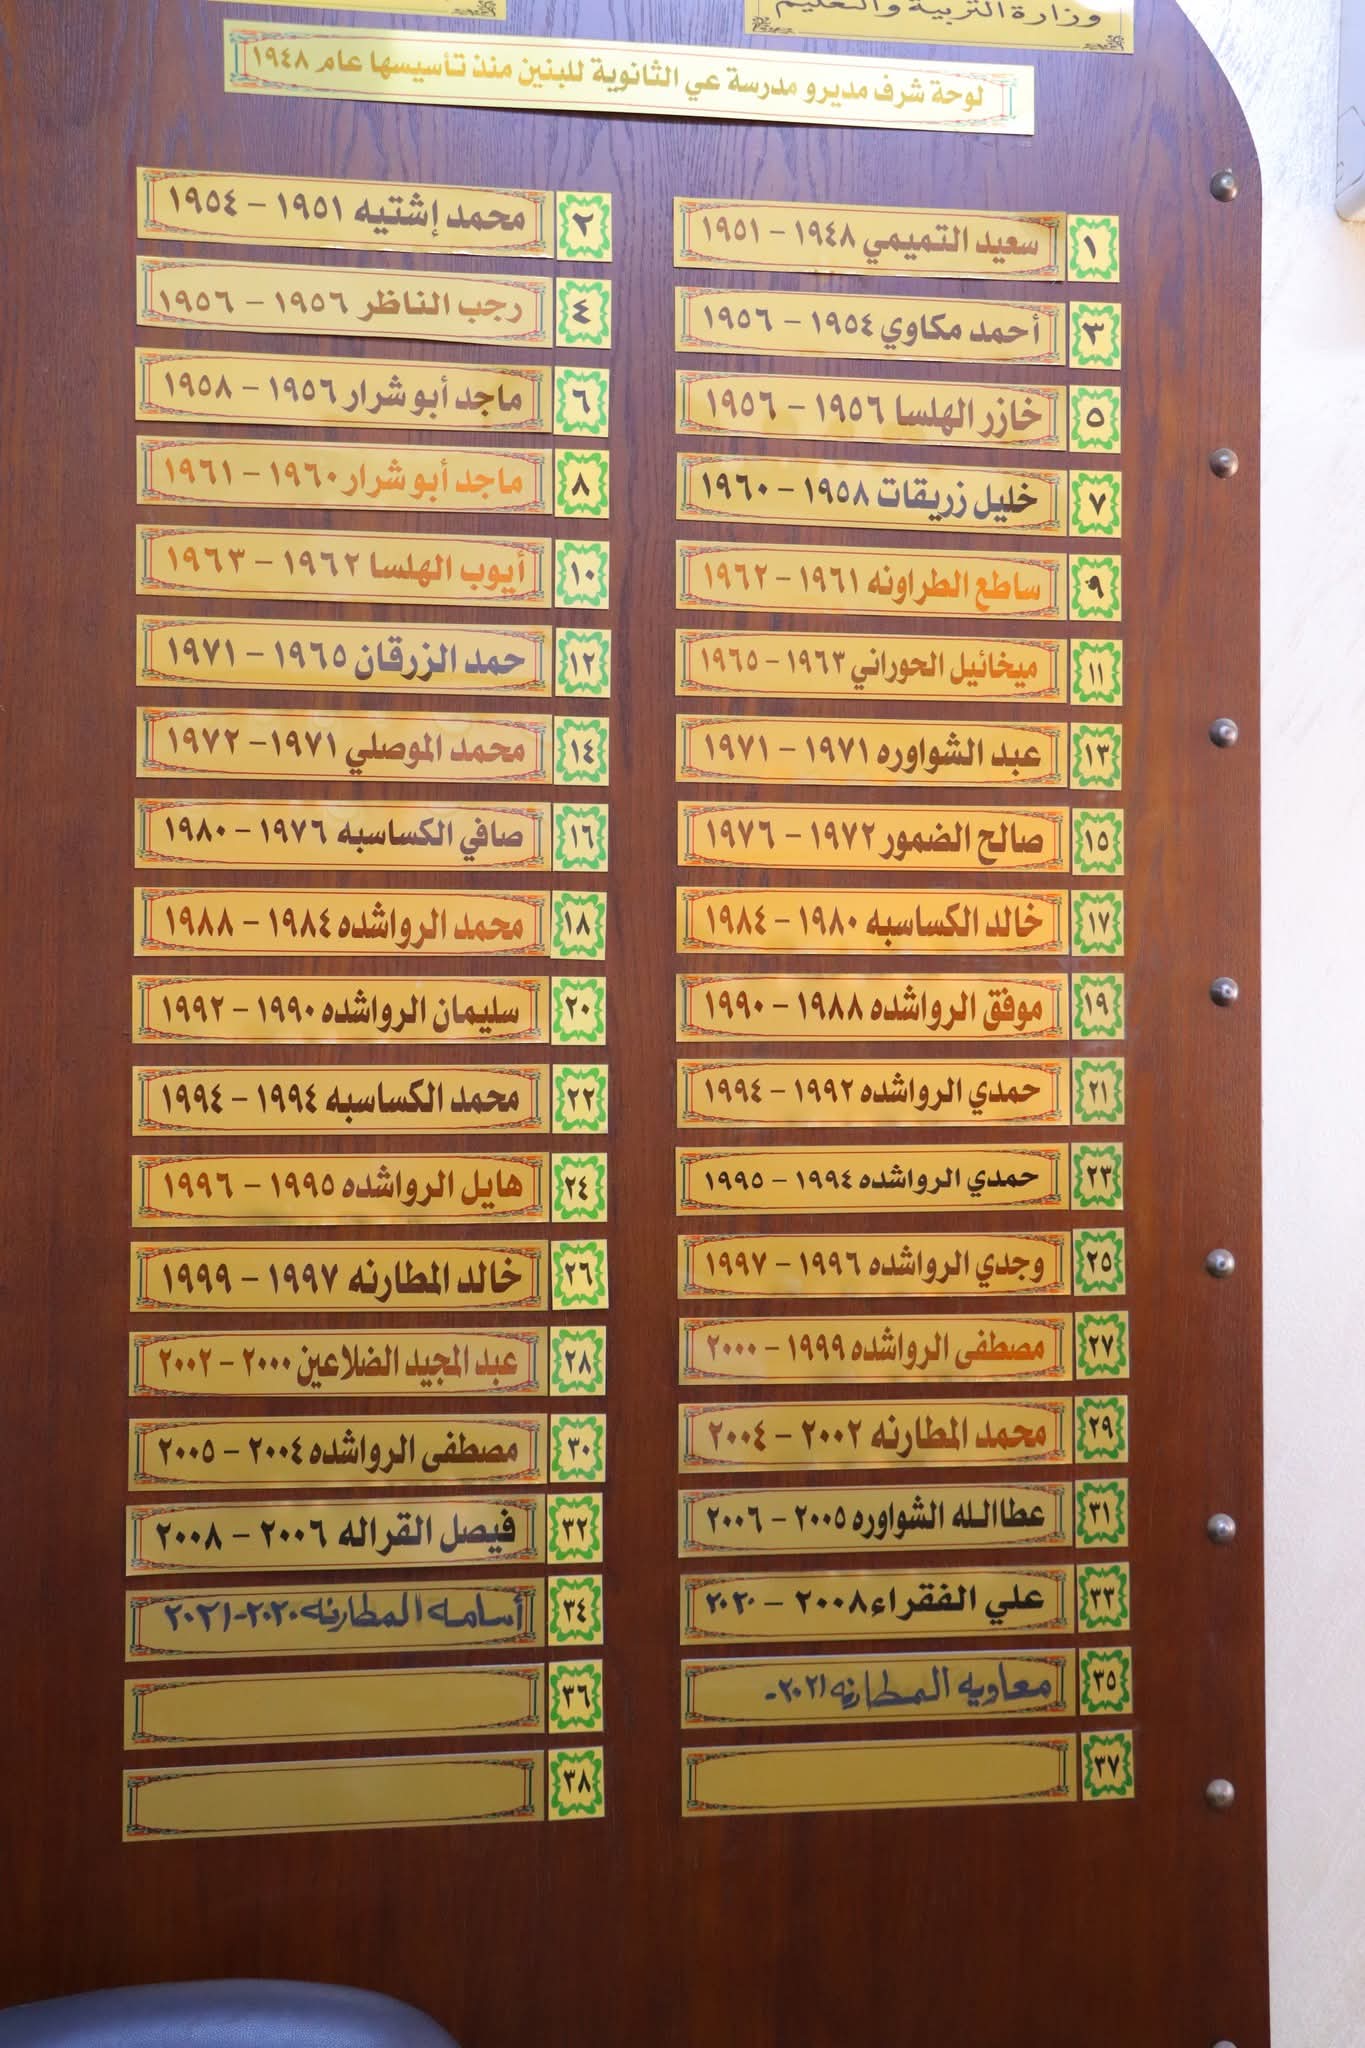 وزارة التربية والتعليم
لوحة شرف مديرو مدرسة عي الثانوية للبنين منذ تأسيسها عام ١٩٤٨
١ سعيد التميمي ١٩٤٨ - ١٩٥١
٢ محمد إشتيه ١٩٥١ - ١٩٥٤
٣ أحمد مكاوي ١٩٥٤ - ١٩٥٦
٤ رجب الناظر ١٩٥٦ - ١٩٥٦
٥ خازر الهلسا ١٩٥٦ - ١٩٥٦
٦ ماجد أبو شرار ١٩٥٦ - ١٩٥٨
٧ خليل زريقات ١٩٥٨ - ١٩٦٠
٨ ماجد أبو شرار ١٩٦٠ - ١٩٦١
٩ ساطع الطراونه ١٩٦١ - ١٩٦٢
١٠ أيوب الهلسا ١٩٦٢ - ١٩٦٣
١١ ميخائيل الحوراني ١٩٦٣ - ١٩٦٥
١٢ حمد الزرقان ١٩٦٥ - ١٩٧١
١٣ عبد الشواوره ١٩٧١ - ١٩٧١
١٤ محمد الموصلي ١٩٧١ - ١٩٧٢
١٥ صالح الضمور ١٩٧٢ - ١٩٧٦
١٦ صافي الكساسبه ١٩٧٦ - ١٩٨٠
١٧ خالد الكساسبه ١٩٨٠ - ١٩٨٤
١٨ محمد الرواشده ١٩٨٤ - ١٩٨٨
١٩ موفق الرواشده ١٩٨٨ - ١٩٩٠
٢٠ سليمان الرواشده ١٩٩٠ - ١٩٩٢
٢١ حمدي الرواشده ١٩٩٢ - ١٩٩٤
٢٢ محمد الكساسبه ١٩٩٤ - ١٩٩٤
٢٣ حمدي الرواشده ١٩٩٤ - ١٩٩٥
٢٤ هايل الرواشده ١٩٩٥ - ١٩٩٦
٢٥ وجدي الرواشده ١٩٩٦ - ١٩٩٧
٢٦ خالد المطارنه ١٩٩٧ - ١٩٩٩
٢٧ مصطفى الرواشده ١٩٩٩ - ٢٠٠٠
٢٨ عبد المجيد الضلاعين ٢٠٠٠ - ٢٠٠٢
٢٩ محمد المطارنه ٢٠٠٢ - ٢٠٠٤
٣٠ مصطفى الرواشده ٢٠٠٤ - ٢٠٠٥
٣١ عطاالله الشواوره ٢٠٠٥ - ٢٠٠٦
٣٢ فيصل القراله ٢٠٠٦ - ٢٠٠٨
٣٣ علي الفقراء ٢٠٠٨ - ٢٠٢٠
٣٤ أسامه المطارنه ٢٠٢٠-٢٠٢١
٣٥ معاويه المطارنه ٢٠٢١-
٣٦
٣٧
٣٨